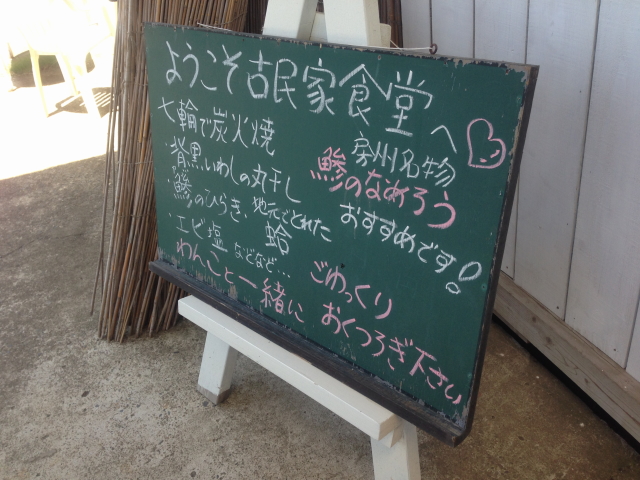 ようこそ古民家食堂へ
七輪で炭火焼
・背黒いわしの丸干し
・鯵のひらき、地元でとれた
・エビ塩 蛤
などなど…
房州名物
鯵のなめろう
おすすめです!
わんこと一緒に ごゆっくり
おくつろぎ下さい